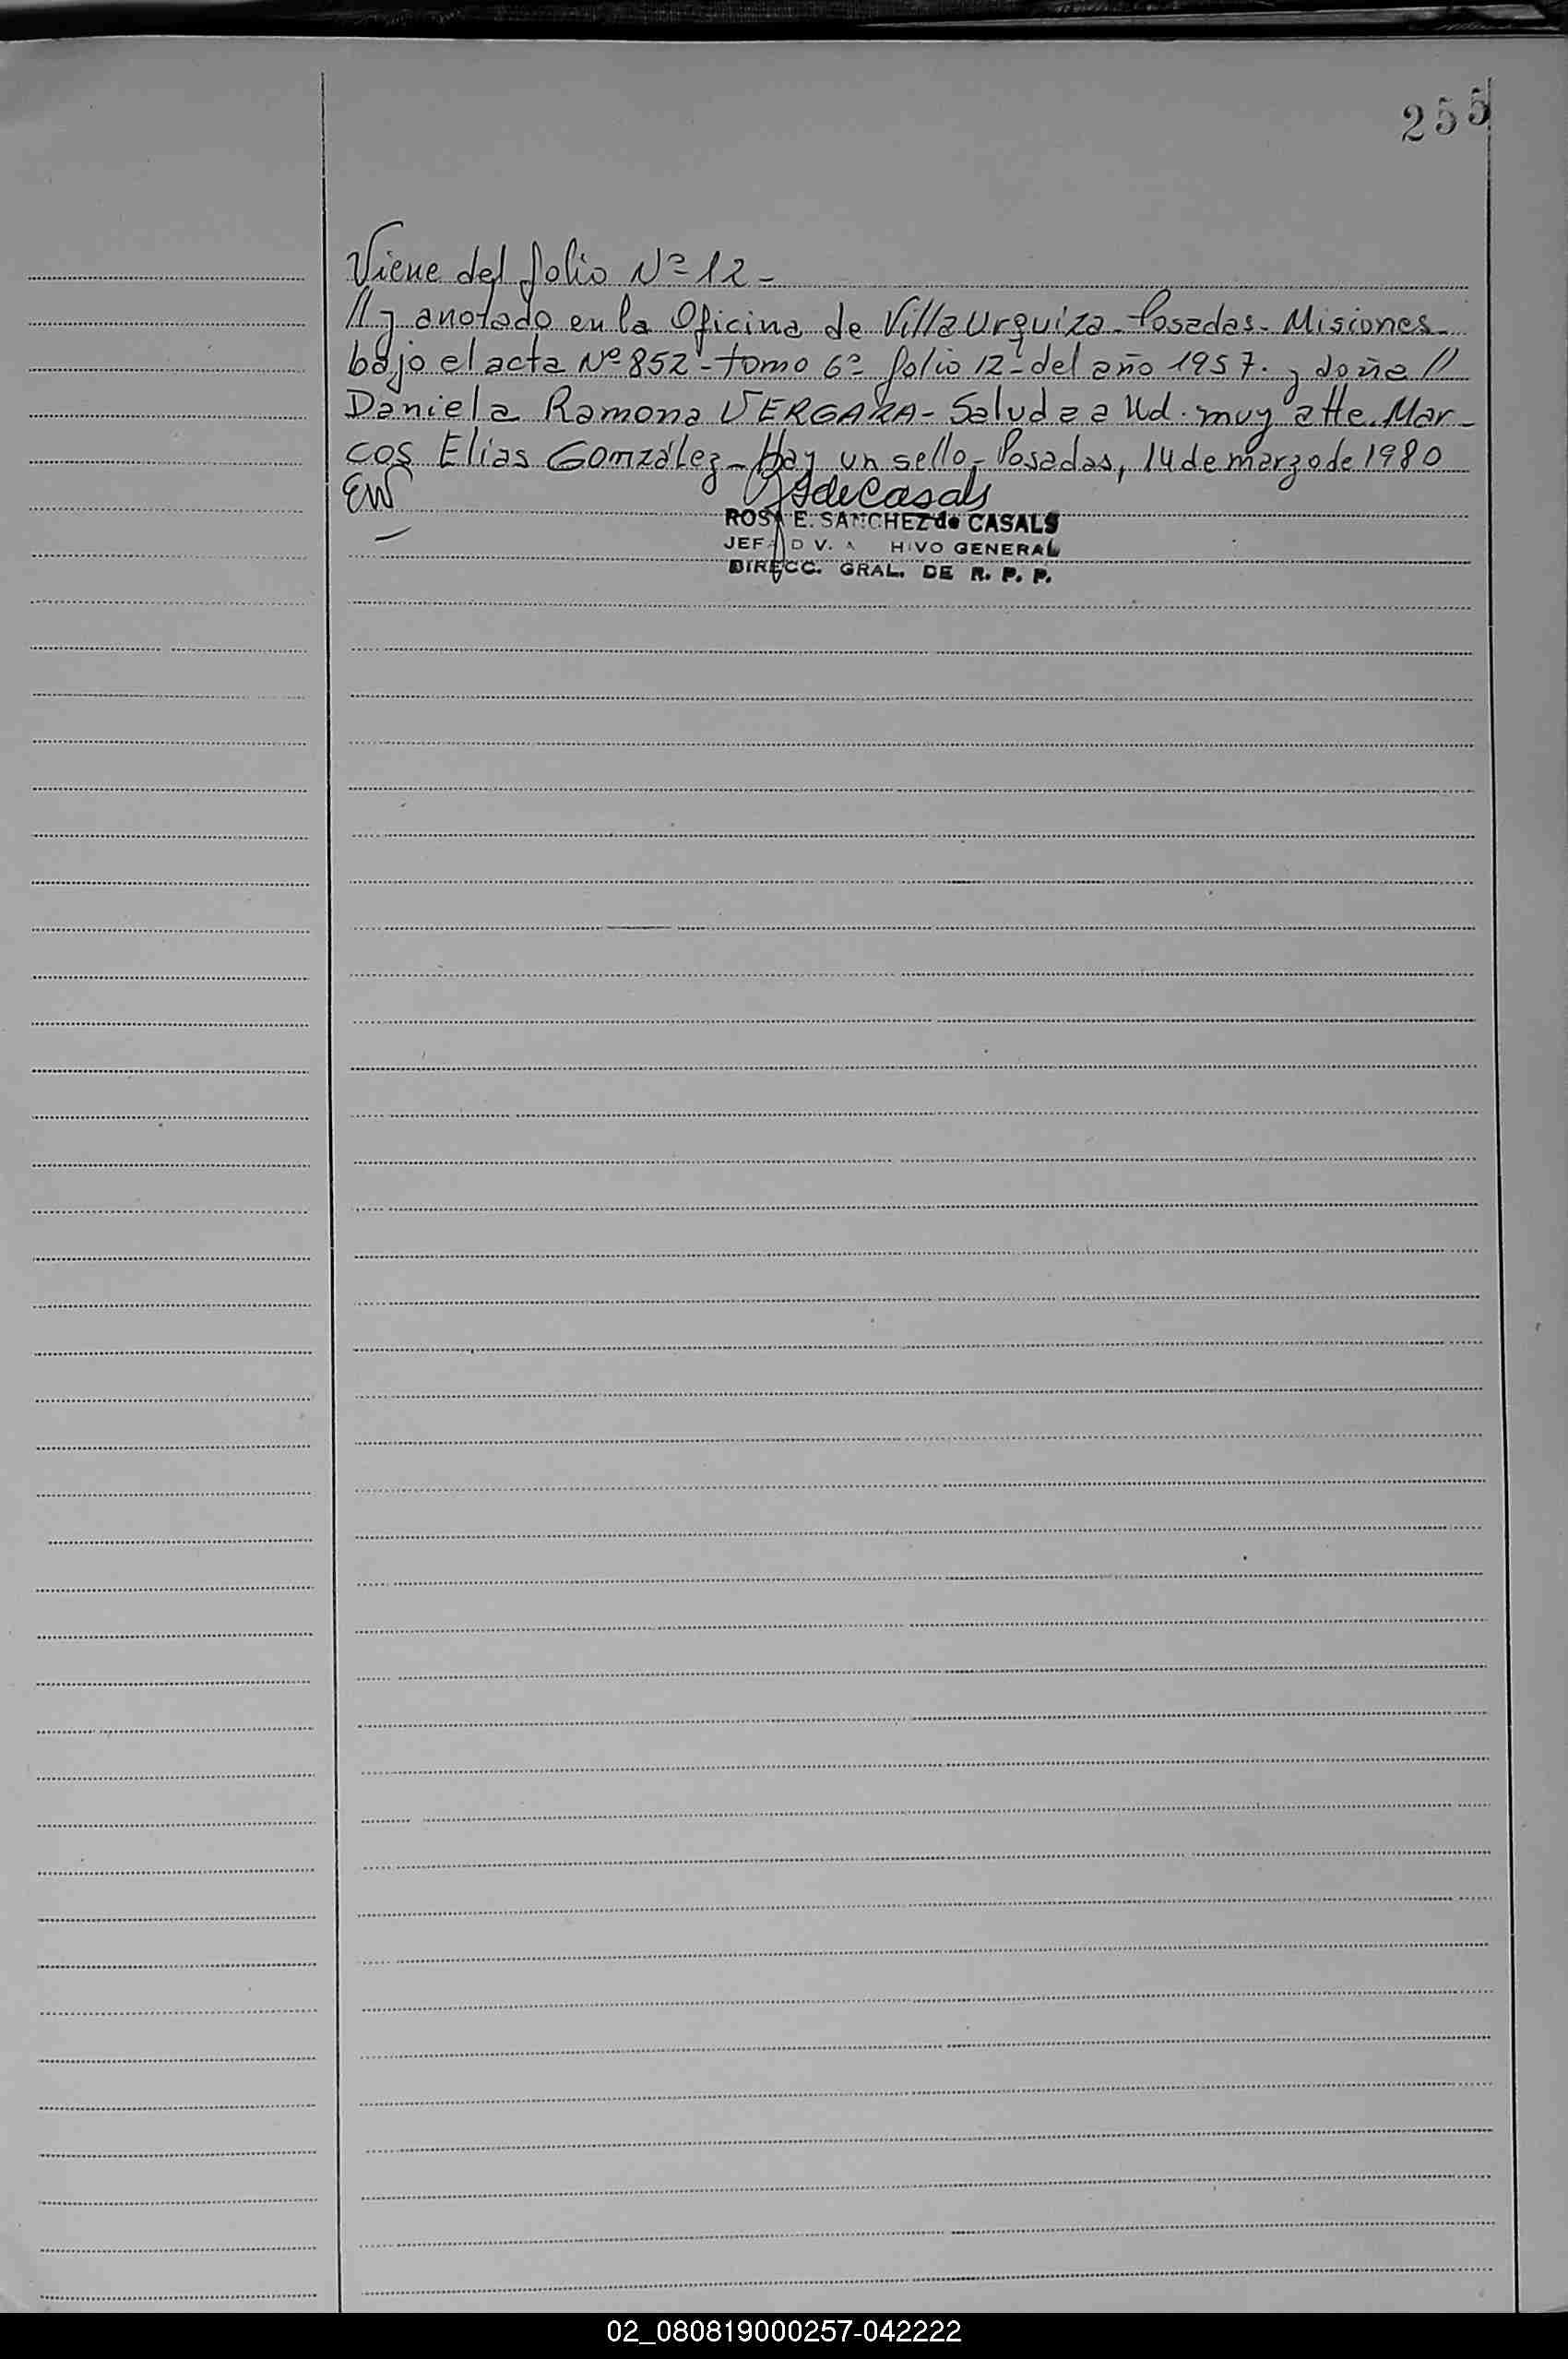 255
Viene del folio Nº 12 -
// y anotado en la Oficina de Villa Urquiza - Posadas - Misiones -
bajo el acta Nº 852 - tomo 6º folio 12 - del año 1957. y doña //
Daniela Ramona VERGARA - Saluda a Ud. muy atte. Mar-
cos Elias González - Hay un sello - Posadas, 14 de marzo de 1980
EW
RSdeCasals
ROSA E. SANCHEZ de CASALS
JEFA D V. A HIVO GENERAL
DIRECC. GRAL. DE R. P. P.
02_080819000257-042222